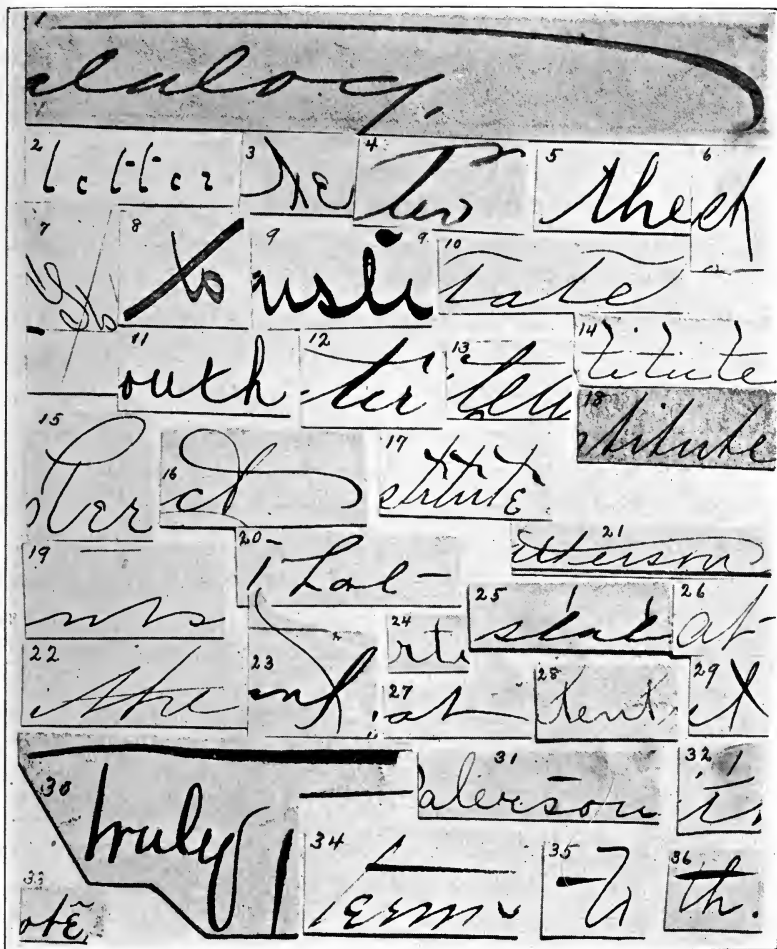 1
2 letter 3 the 4 ter 5 the 6 ch
7 8 to 9 usti 9 10 Tate
11 outh 12 ter 13 14 titute
15 16 ct 17 stitute 18 stitute
19 nts 20 That 21 tterson
22 the 23 24 rte 25 state 26 at
27 at 28 tent 29 ct
30 truly 31 aterson 32
33 ote 34 Term 35 36 th.